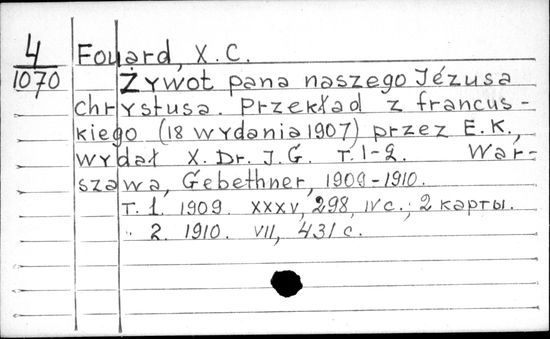 4 Fouard, X. C.
1070 Żywot pana naszego Jézusa
chrystusa. Przekład z francus-
kiego (18 wydania 1907) przez E. K.,
wydał X. Dr. J. G. T. 1-2. War-
szawa, Gebethner, 1909-1910.
T. 1. 1909. XXXV, 298, IV с.; 2 карты.
" 2. 1910. VII, 431 с.